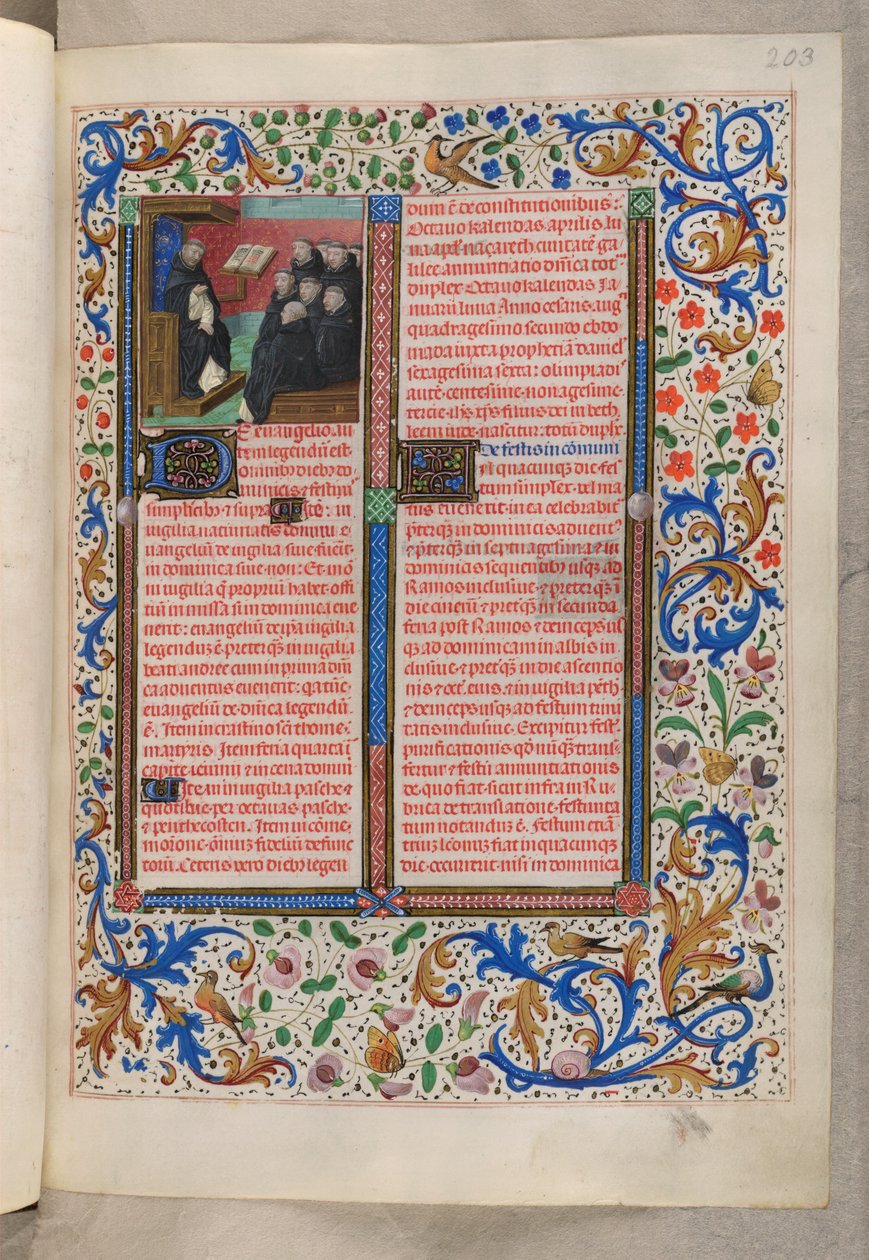 203
De evangelio. Au
tem legendum est
omnibus diebus do
minicis & festivis
simplicibus & supra. Iste: in
vigilia nativitatis domini e
vangeliū de vigilia sive fuerit
in dominica sive non: Et in oī
vigilia q̄ propriū habet offi
tiū in missa si in dominica eve
nerit: evangeliū de ipa vigilia
legendū ē preterq̄ in vigilia
beati andree cum in prima dn̄i
ca adventus evenerit: qa tūc
evangeliū de dn̄ica legendū
ē. Item in crastino sci thome
martyris. Item feria quarta ī
capite ieiunii & in cena domini
Item in vigilia pasche &
quotibus per octavas pasche
& penthecosten. Item in cōme
moratione oīuum fidelium defunc
torū. Ceteris vero diebus legen
dum ē de constitutionibus:
Octavo kalendas aprilis lu
na apud naçareth civitatē ga
lilee annuntiatio dn̄ica totū
duplex Octavo kalendas Ja
nuarii luna Anno cesaris aug
quadragesimo secundo ebdo
mada iuxta prophetiā daniel
sexagesima sexta: olimpiadi
autē centesime nonagesime
tercie ihs xps filius dei in beth
leem iude nascitur: totū duplx
De festis in cōmuni
In quacunque die fes
tum simplex vel ma
ius evenerit in ea celebrabit
pretqʒ in dominicis adventus
& preterqʒ in septuagesima & in
dominicis sequentibus usque ad
Ramos inclusive & preterqʒ in
die cinerum & pretqʒ in secunda
feria post Ramos & deinceps us
qʒ ad dominicam in albis in
clusive & pretqʒ in die ascentio
nis & oct. eius & in vigilia pēth
& deinceps usqʒ ad festum trini
tatis inclusive. Excipitur fest
purificationis qd nūqʒ trans
fertur & festū annuntiationis
de quo fiat sicut infra in Ru
brica de translatione festivita
tum notandum ē. Festum etiā
trium leconum fiat in quacumqʒ
die occurrerit nisi in dominica